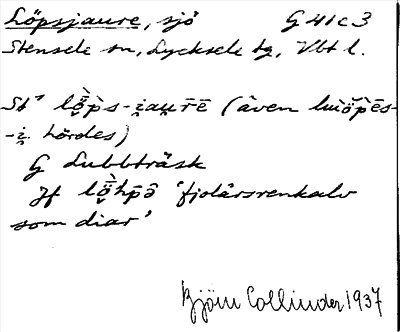 Löpsjaure, sjö G 41 c 3
Stensele sn, Lycksele tg, Vbt l.
St⁷ lǫ̈̄p̀s-i̯au̯r̄ē (även luiö̆p̀ēs-
-i̯. hördes)
G Lubbträsk
Jf lǫ̈̄hp̄ə̂ 'fjolårsrenkalv
som diar'
Björn Collinder 1937